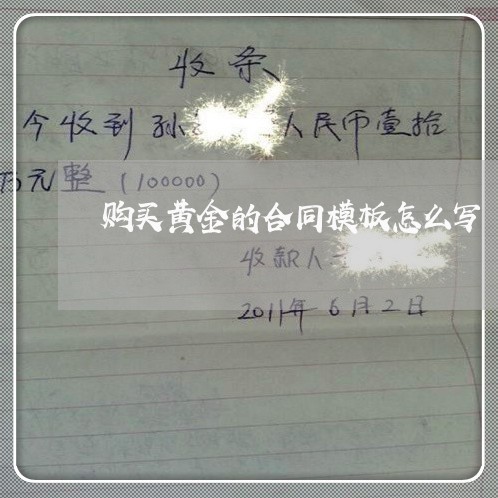 收条
今收到孙 人民币壹拾
万元整(100000)
购买黄金的合同模板怎么写
收款人
2011年6月2日